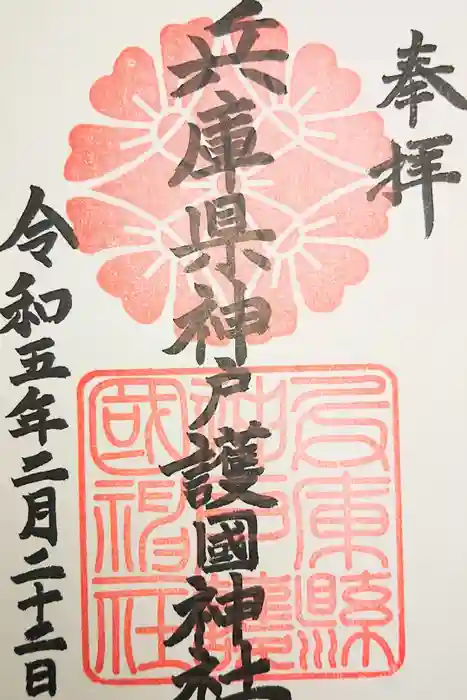 奉拝
兵庫県神戸護國神社
兵庫縣
神戸護
國神社
令和五年二月二十二日